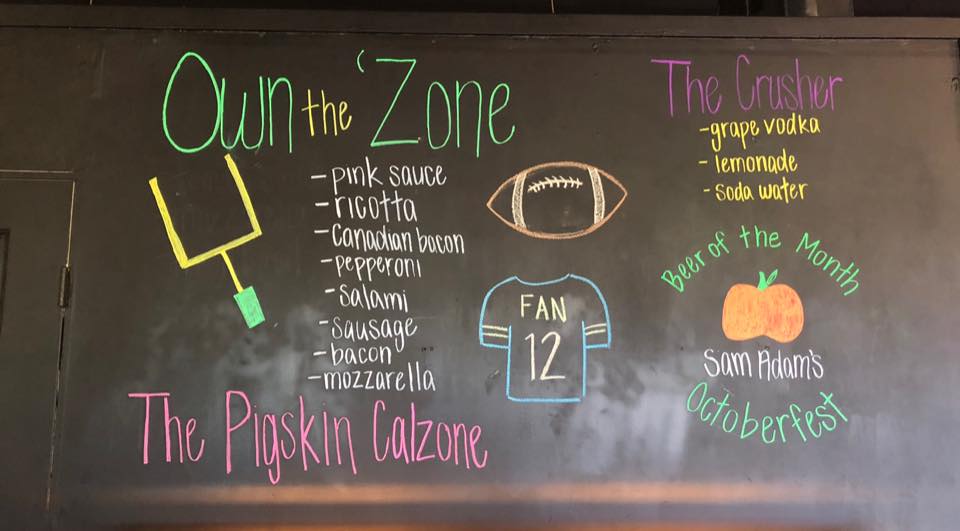 Own the 'Zone
-pink sauce
-ricotta
-Canadian bacon
-pepperoni
-salami
-sausage
-bacon
-mozzarella
The Pigskin Calzone
FAN
12
The Crusher
-grape vodka
-lemonade
-soda water
Beer of the Month
Sam Adam's
Octoberfest